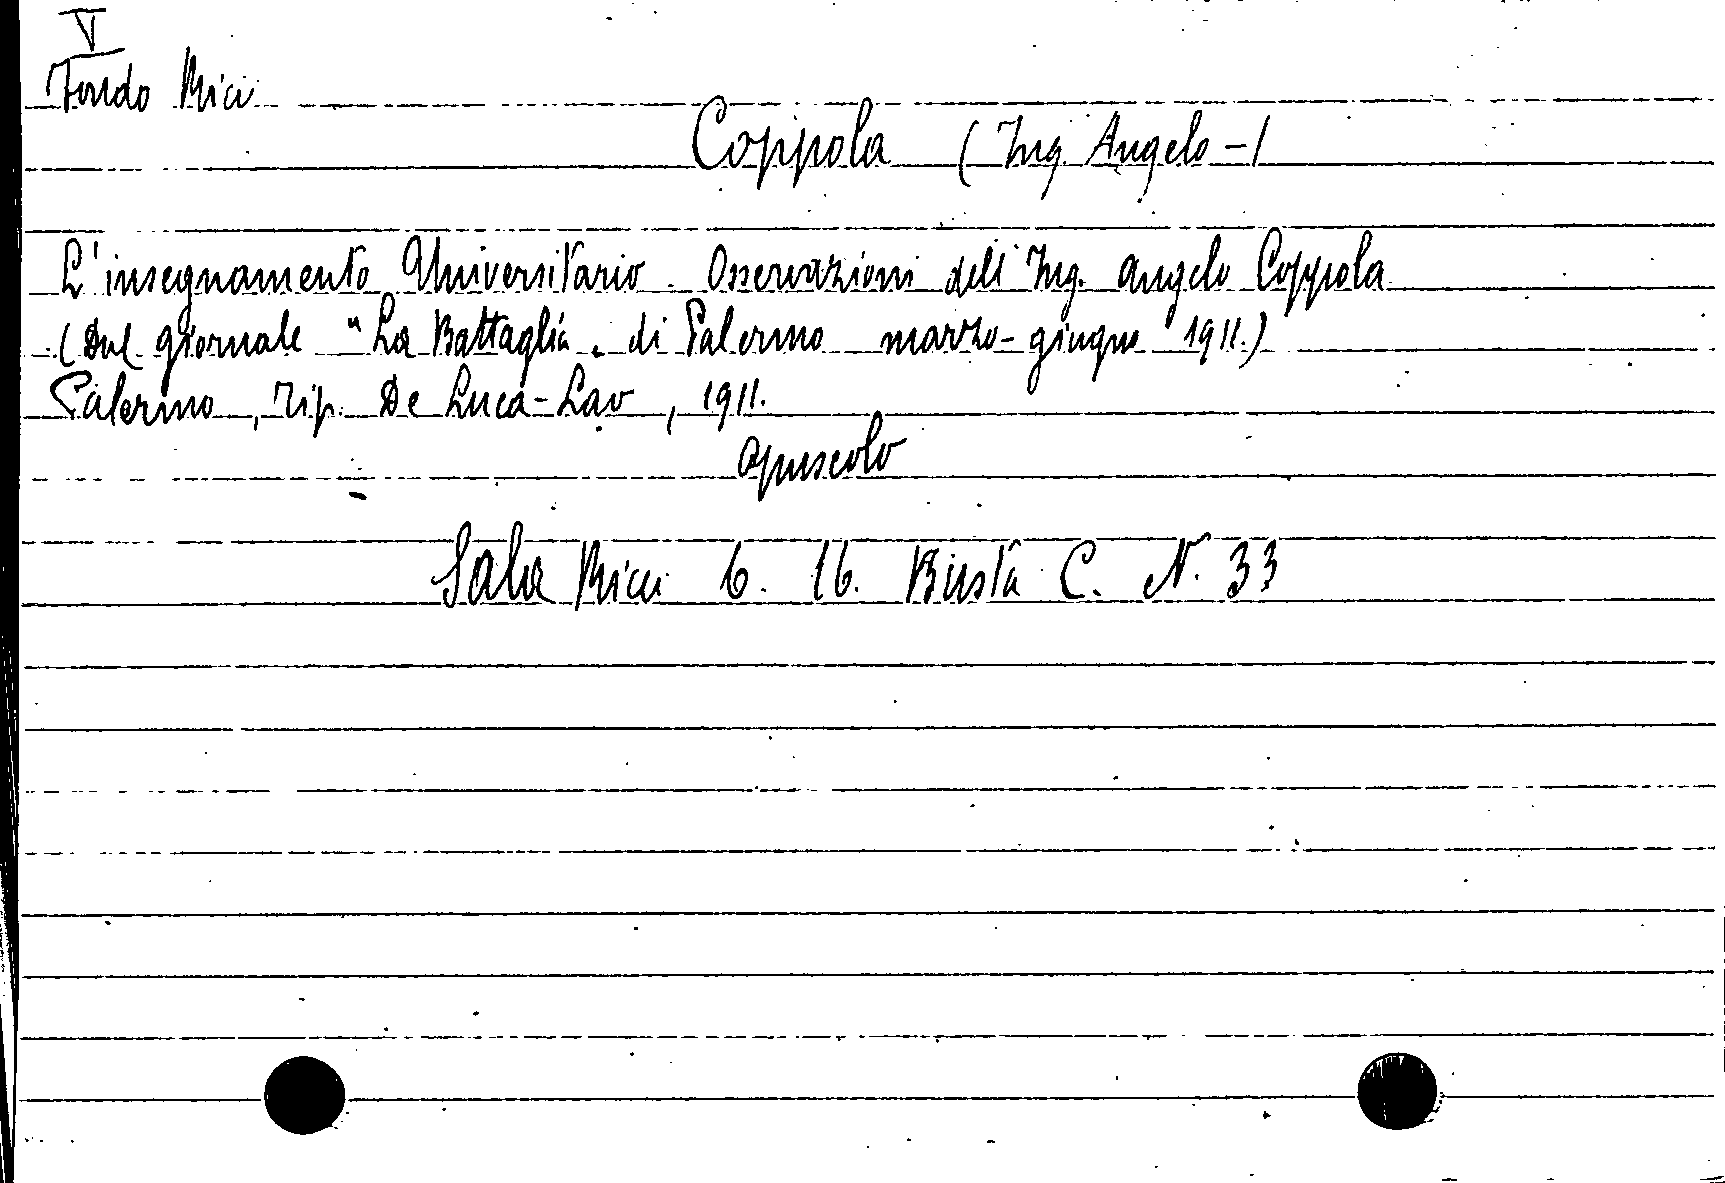 V
Fondo Ricci
Coppola (Ing. Angelo -)
L'insegnamento Universitario. Osservazioni dell'Ing. Angelo Coppola
(Dal giornale "La Battaglia" di Palermo marzo-giugno 1911.)
Palermo, Tip. De Luca-Lao, 1911.
opuscolo
Sala Ricci 6. 16. Busta C. N. 33